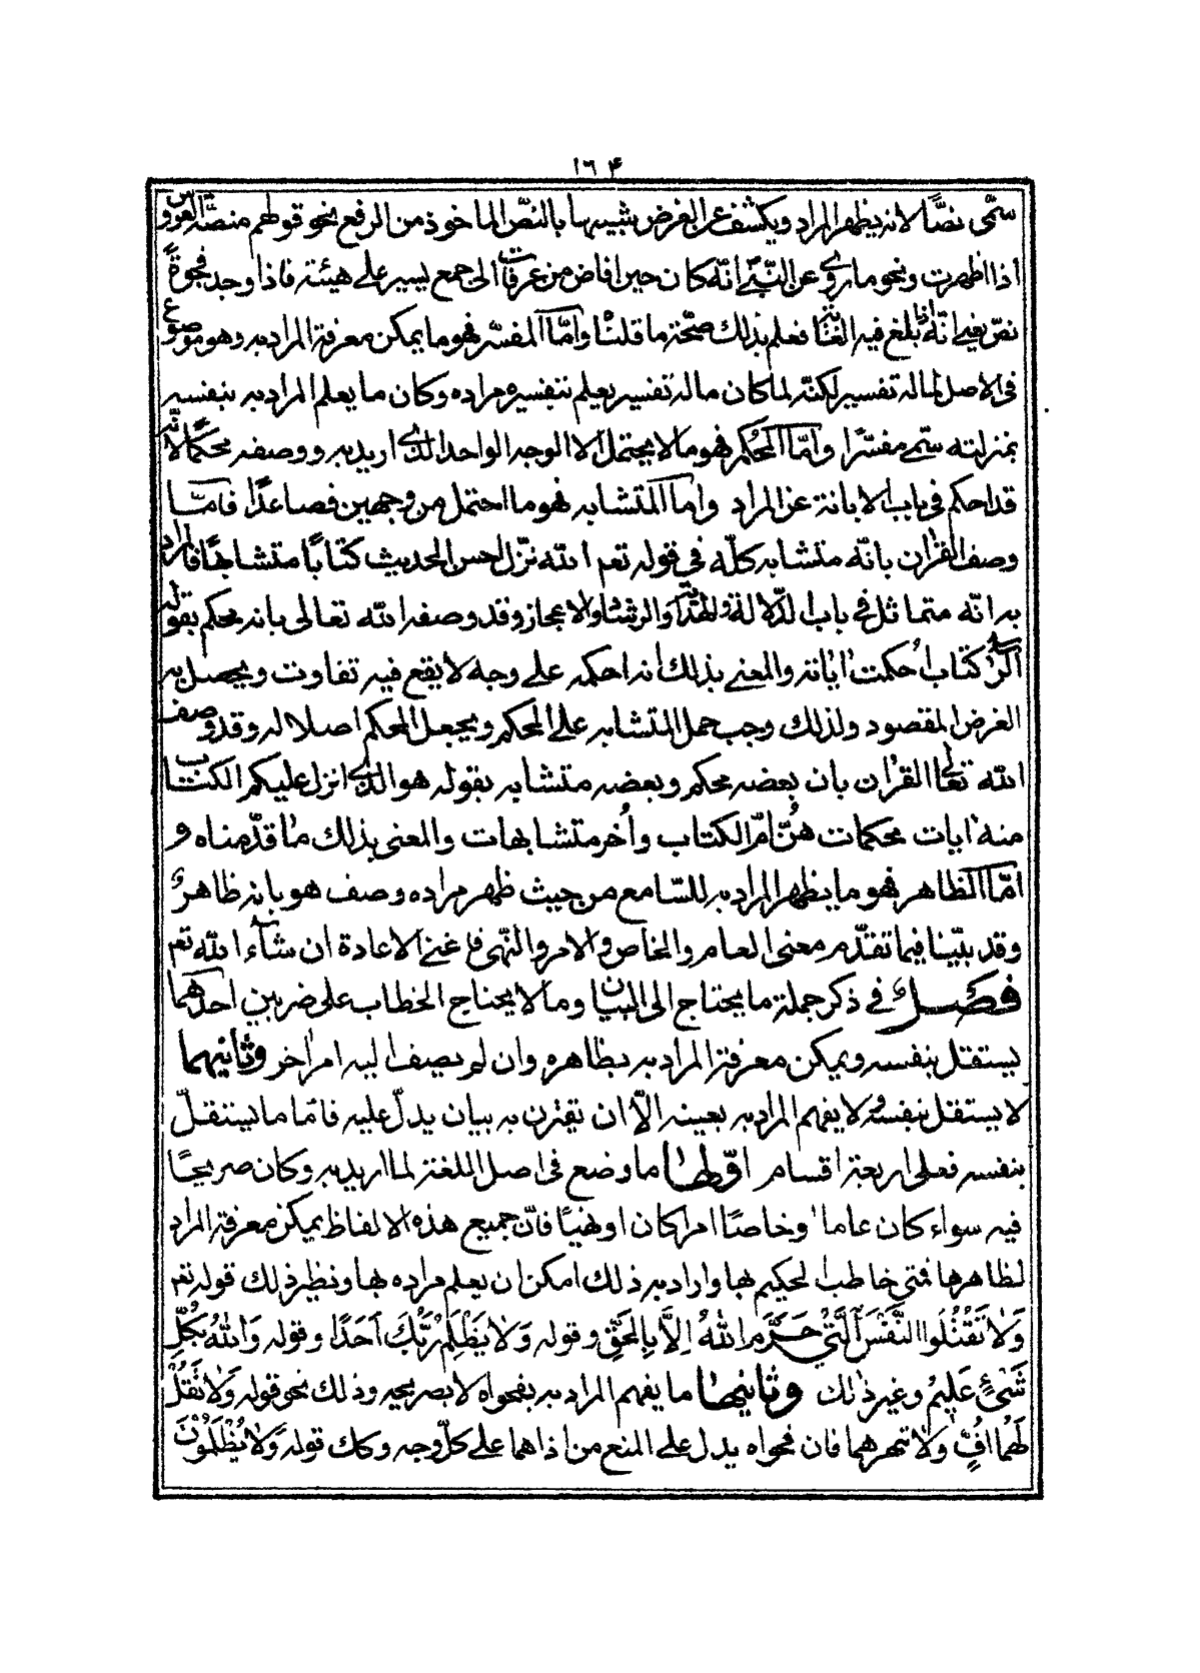 ١٦۴
سمّى نصًّا لانه يظهر المراد ويكشف عن الغرض تشبيها بالنصّ الماخوذ من الرفع نحو قولهم منصّة العروس
اذا اظهرت ونحو ما روى عن النبي انّه كان حين افاض من عرفات الى جمع يسير على هيئته فاذا وجد فجوةً
نصّ يعنى انّه اذا بلغ فيه الغاية فعلم بذلك صحّة ما قلناه وامّا المفسّر فهو ما يمكن معرفة المراد به وهو موضوع
فى الاصل لما له تفسير لكنّه لما كان ما له تفسير يعلم بتفسيره مراده وكان ما يعلم المراد به بنفسه
بمنزلته سمّى مفسّرًا وامّا المحكم فهو ما لا يحتمل الا الوجه الواحد الذى اريد به ووصفه محكمًا لانّه
قد احكم فى باب الابانة عن المراد واما المتشابه فهو ما احتمل من وجهين فصاعدًا فامّا
وصف القران بانّه متشابه كلّه فى قوله تعم الله نزّل احسن الحديث كتابًا متشابهًا فالمراد
به انّه متماثل فى باب الدّلالة والهداية والرشاد والاعجاز وقد وصفه الله تعالى بانه محكم بقوله
آلر كتاب اُحكمت اياته والمعنى بذلك انه احكمه على وجه لا يقع فيه تفاوت ويحصل به
الغرض المقصود ولذلك وجب حمل المتشابه على المحكم ويجعل المحكم اصلا له وقد وصف
الله تعالى القران بان بعضه محكم وبعضه متشابه بقوله هو الذى انزل عليكم الكتاب
منه ايات محكمات هُنّ امّ الكتاب واُخر متشابهات والمعنى بذلك ما قدّمناه و
امّا الظاهر فهو ما يظهر المراد به للسّامع من حيث ظهر مراده وصف هو بانه ظاهرٌ
وقد بيّنا فيما تقدّم معنى العام والخاص والامر والنهى فاغنى الاعادة ان شآء الله تعم
فصل فى ذكر جملة ما يحتاج الى البيان وما لا يحتاج الخطاب على ضربين احدهما
يستقل بنفسه ويمكن معرفة المراد به بظاهره وان لم يضف اليه امر اخر وثانيهما
لا يستقل بنفسه ولا يفهم المراد به بعينه الّا ان يقترن به بيان يدلّ عليه فامّا ما يستقلّ
بنفسه فعلى اربعة اقسام اوّلها ما وضع فى اصل اللغة لما اريد به وكان صريحًا
فيه سواء كان عاما وخاصًا امرا كان او نهيًا فانّ جميع هذه الالفاظ يمكن معرفة المراد
لظاهرها فمتى خاطب الحكيم بها واراد به ذلك امكن ان يعلم مراده بها ونظير ذلك قوله تعم
وَلٰا تَقْتُلُوا النَّفْسَ الَّتى حَرَّمَ اللهُ اِلَّا بِالحَقِّ وقوله وَلا يَظْلِمُ رَبُّكَ اَحَدًا وقوله وَاللهُ بِكُلِّ
شَىْءٍ عَليمٌ وغير ذلك وثانيها ما يفهم المراد به بفحواه لا بصريحه وذلك نحو قوله وَلٰا تَقُلْ
لَهُمٰا اُفٍّ وَلا تنهرهما فان فحواه يدل على المنع من اذاهما على كلّ وجه وكك قوله وَلا يُظْلَمُونَ